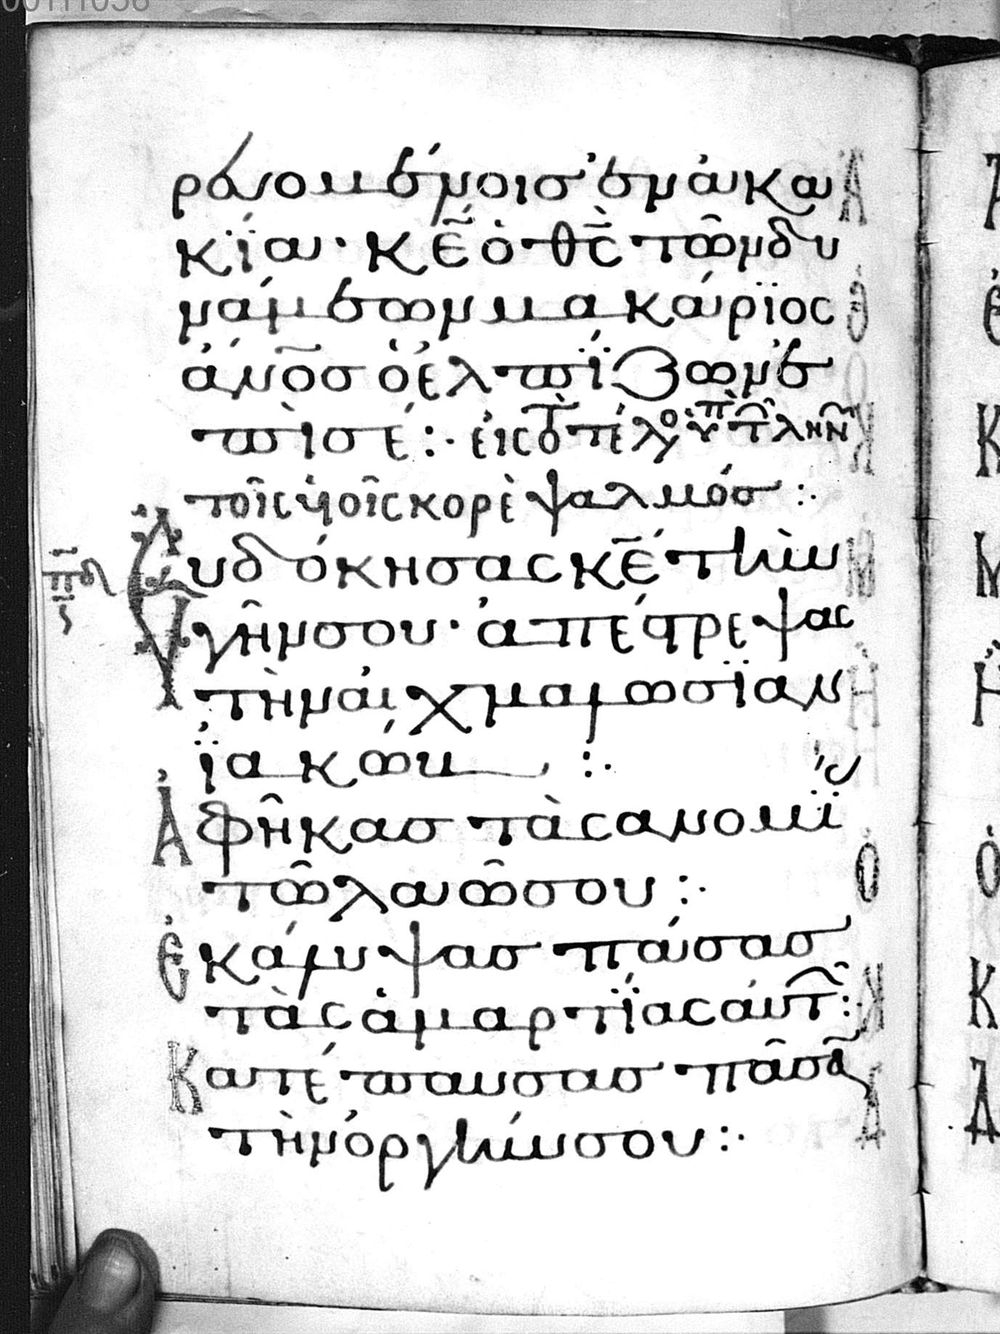 00111058
ρευομένοις ἐν ἀκα
κΐαι· κε̄ ὁ θς̄ τῶν δυ
νάμεων μακάριος
ἄνος̄ ὁ ἐλπΐζων ἐ
πὶ σέ:· εἰς τὸ τέλος ὑπὲρ τῶν λην
τοῖς υἱοῖς κορὲ ψαλμός:·
πδ
Εὐδόκησας κε̄ τὴν
γῆν σου· ἀπέστρεψας
τὴν αἰχμαλωσΐαν
ϊακώβ :·
Ἀφῆκας τὰς ἀνομΐ
τῶ λαῶ σου :·
Ἐκάλυψας πάσας
τὰς ἁμαρτΐας αὐτ:
Κατέπαυσας πᾶσα
τὴν ὀργήν σου :·